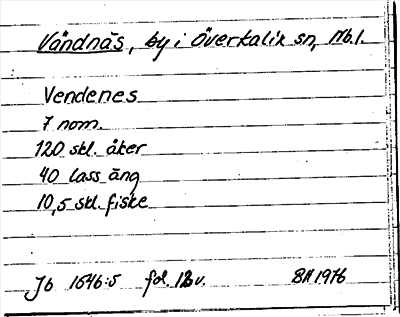 Vändnäs, by i Överkalix sn, Nb.l.
Vendenes
7 nom.
120 skl. åker
40 lass äng
10,5 skl. fiske
Jb 1646:5 fol. 12v. BH 1976